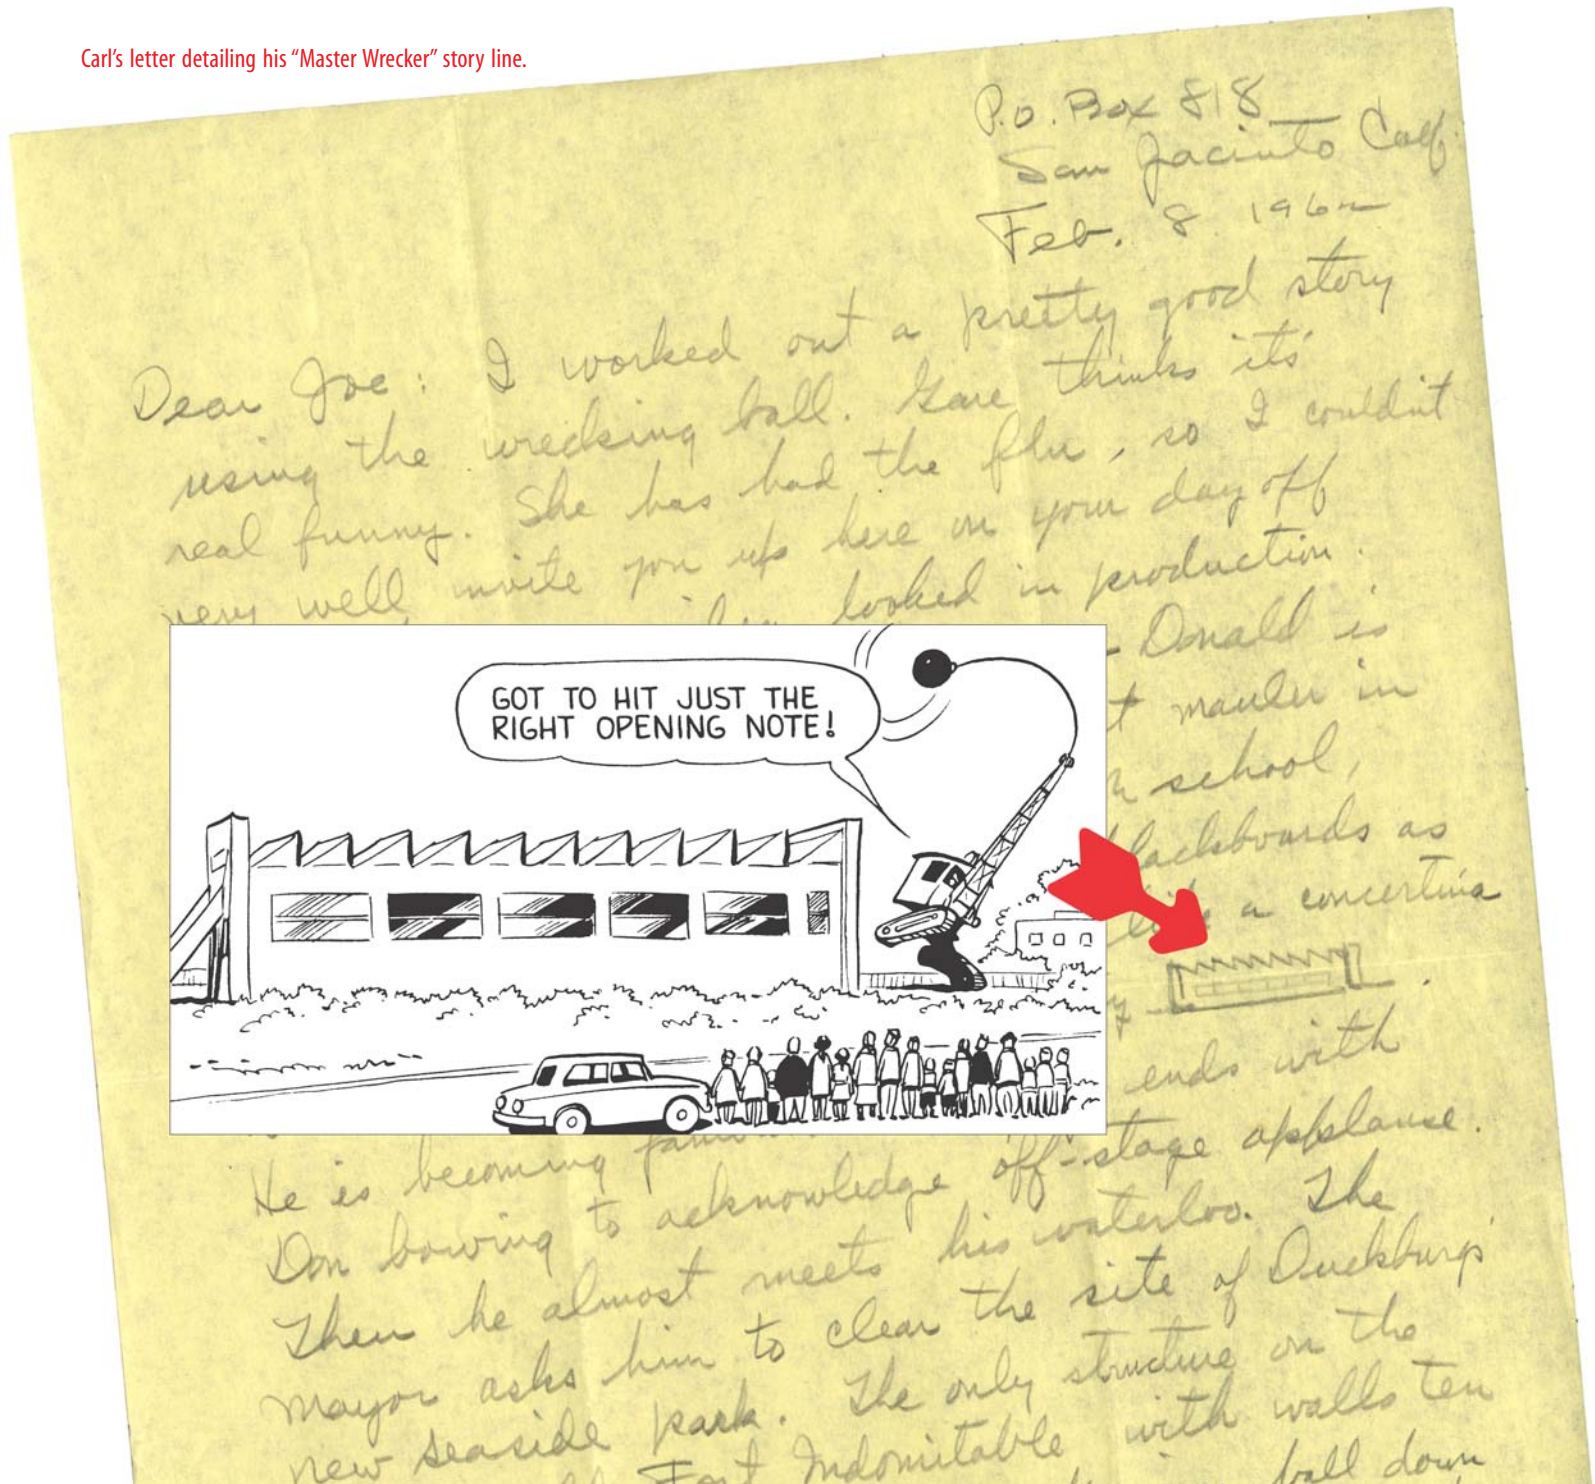 Carl's letter detailing his “Master Wrecker” story line.
P.O. Box 818
San Jacinto Calif.
Feb. 8 1962
Dear Joe: I worked out a pretty good story
using the wrecking ball. Gare thinks its
real funny. She has had the flu, so I couldn't
very well invite you up here on your day off
looked in production.
- Donald is
mauler in
school,
blackboards as
like a concertina
GOT TO HIT JUST THE
RIGHT OPENING NOTE!
ends with
He is becoming
Don bowing to acknowledge off-stage applause.
Then he almost meets his waterloo. The
mayor asks him to clear the site of Duckburg's
new seaside park. The only structure on the
Fort Indomitable with walls ten
ball down